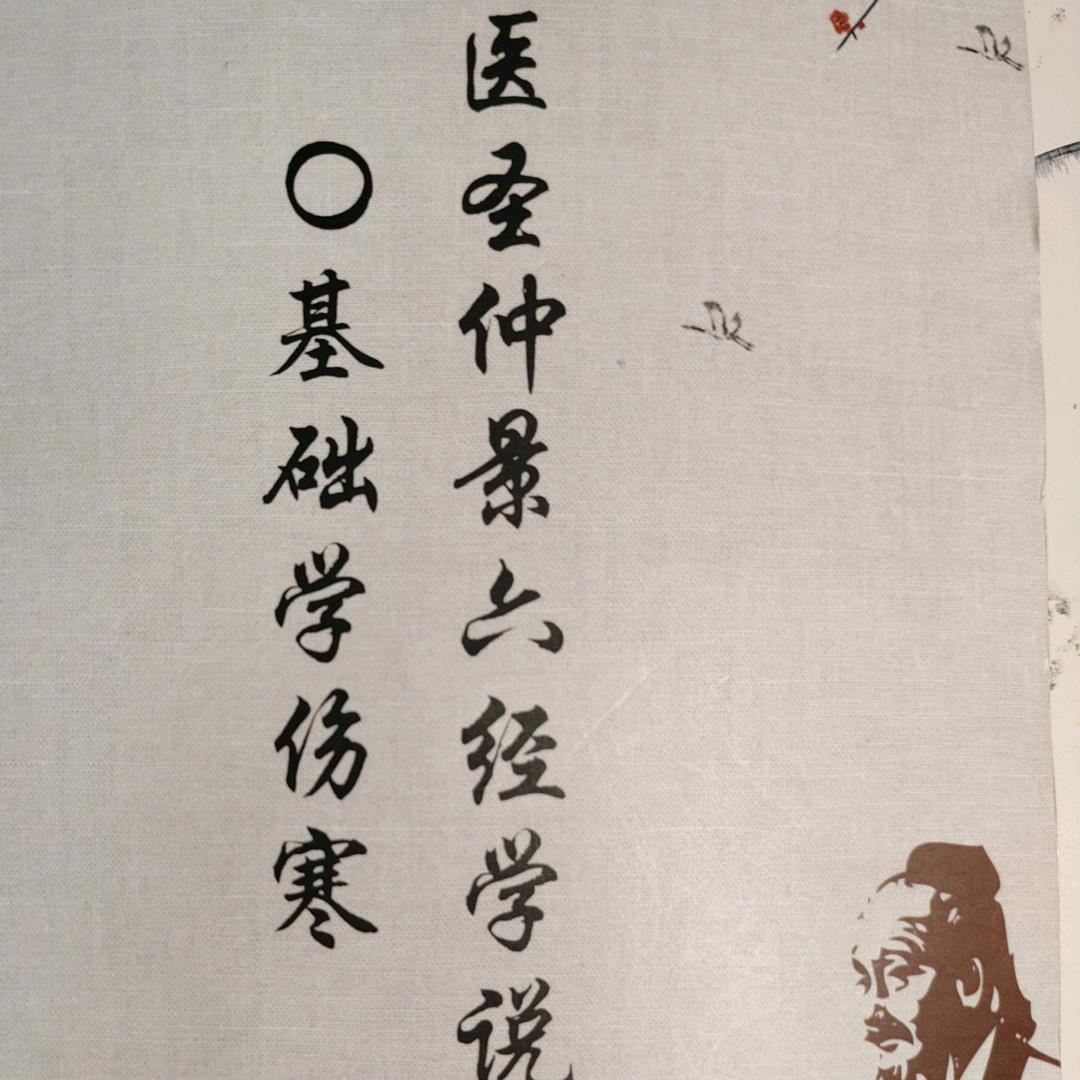 医圣仲景六经学说
〇基础学伤寒